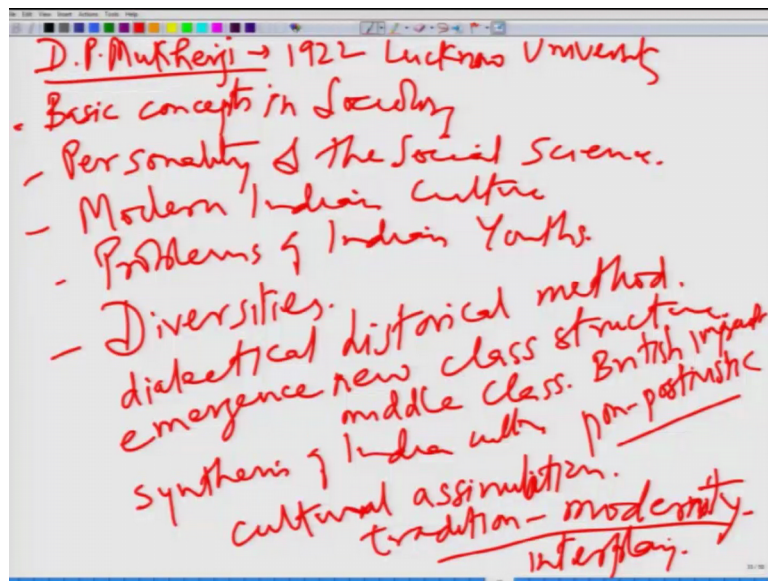 File Edit View Insert Actions Tools Help
D.P. Mukherji → 1922 Lucknow University
. Basic concepts in Sociology
- Personality & the Social Science.
- Modern Indian Culture
- Problems of Indian Youths.
- Diversities.
dialectical historical method.
emergence new class structure
middle class. British impact
synthesis of Indian culture non-positivistic
cultural assimilation.
tradition - modernity
interplay.